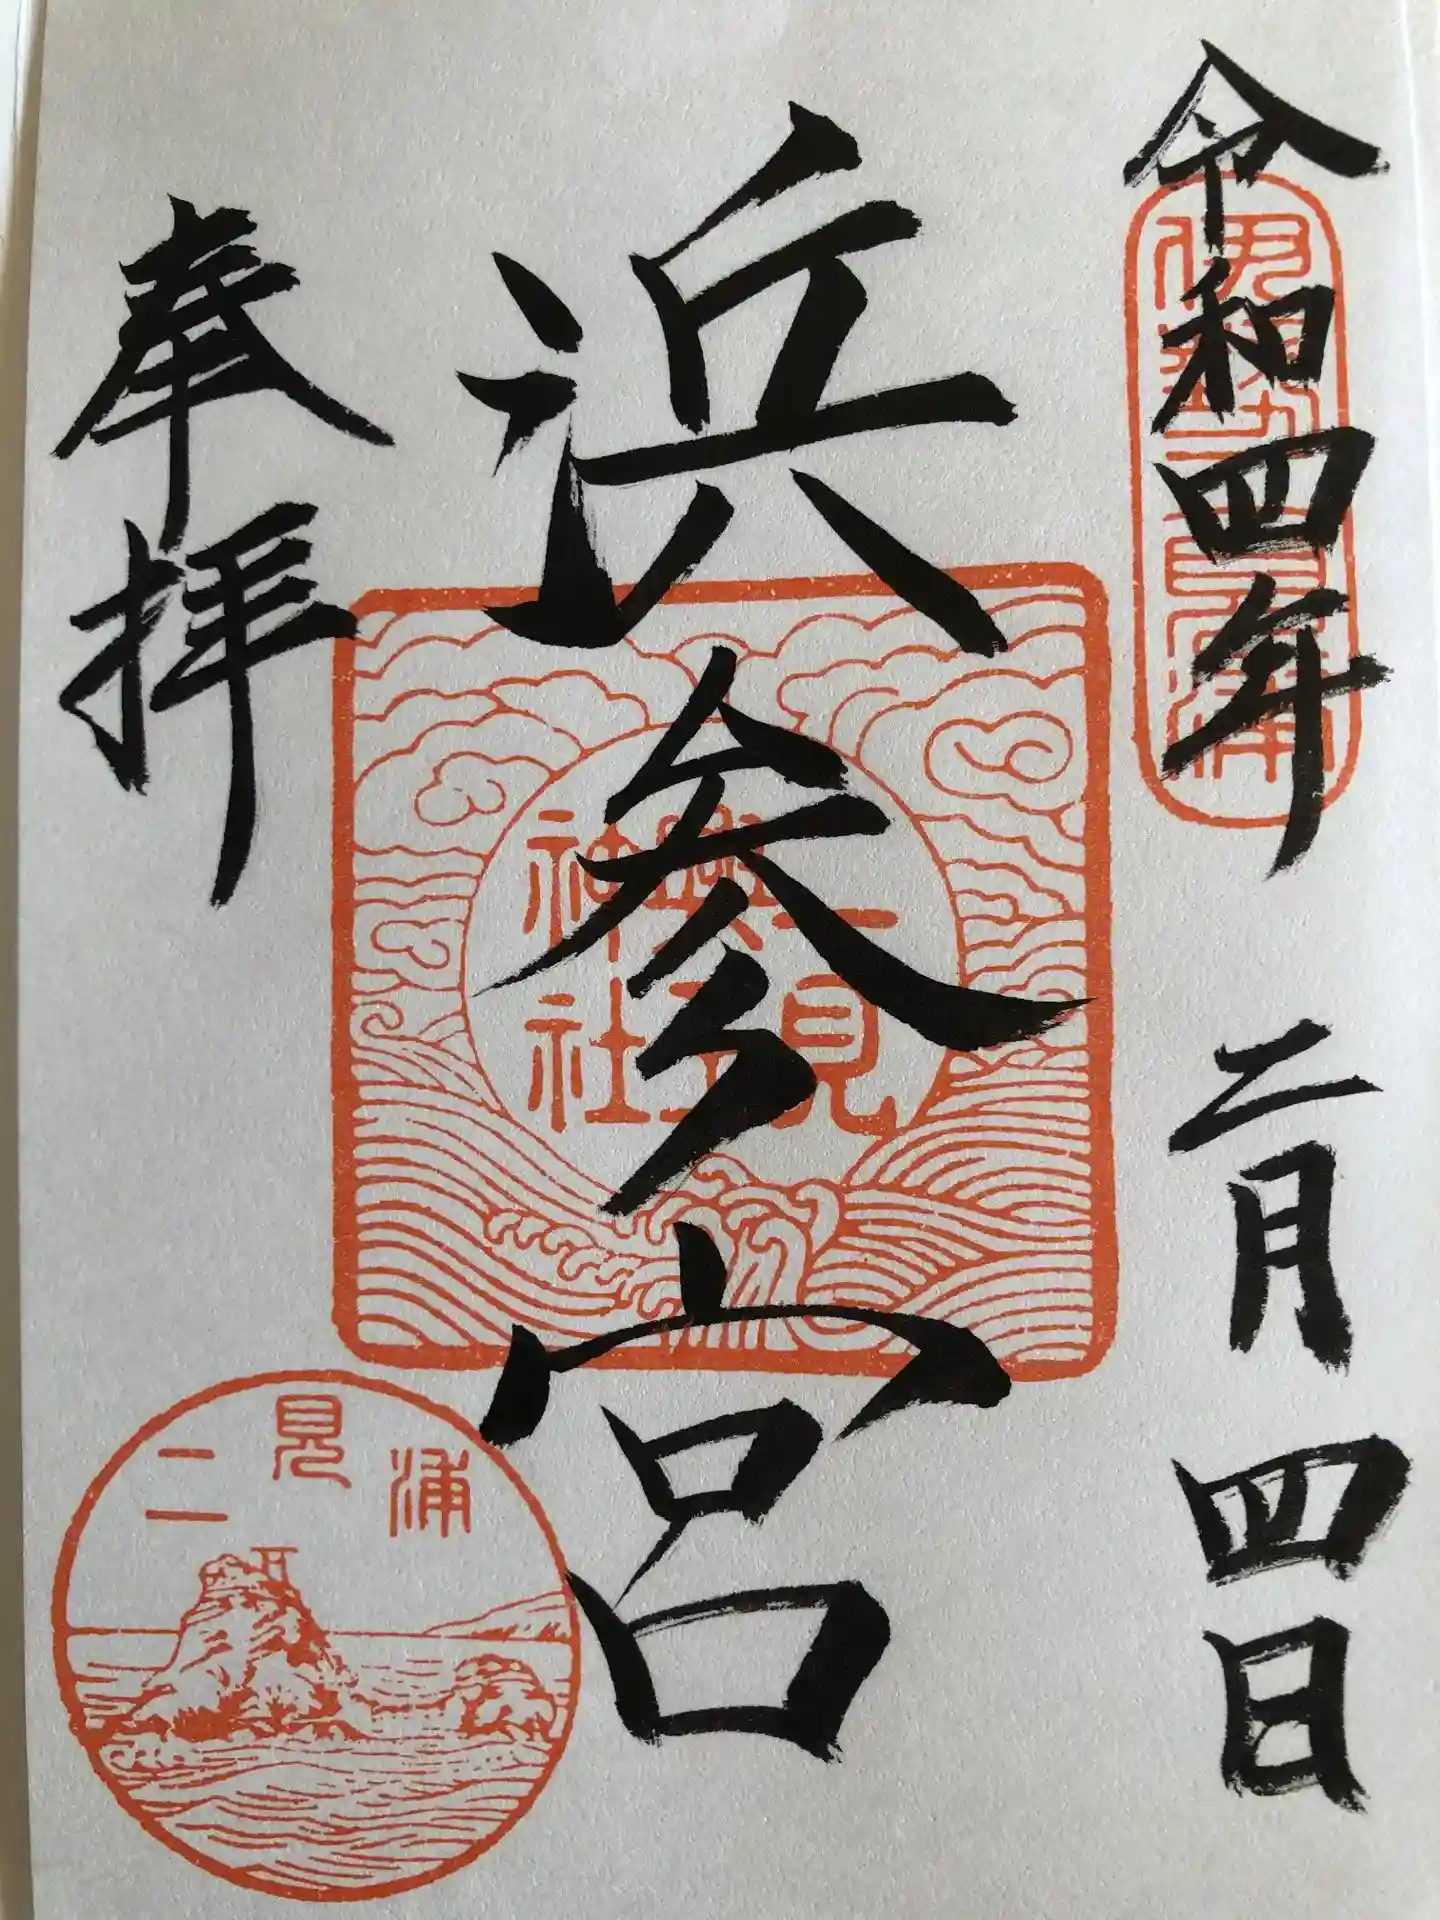 令和四年 二月 四日
伊勢二見浦
浜参宮
二見興玉神社
奉拝
二見浦